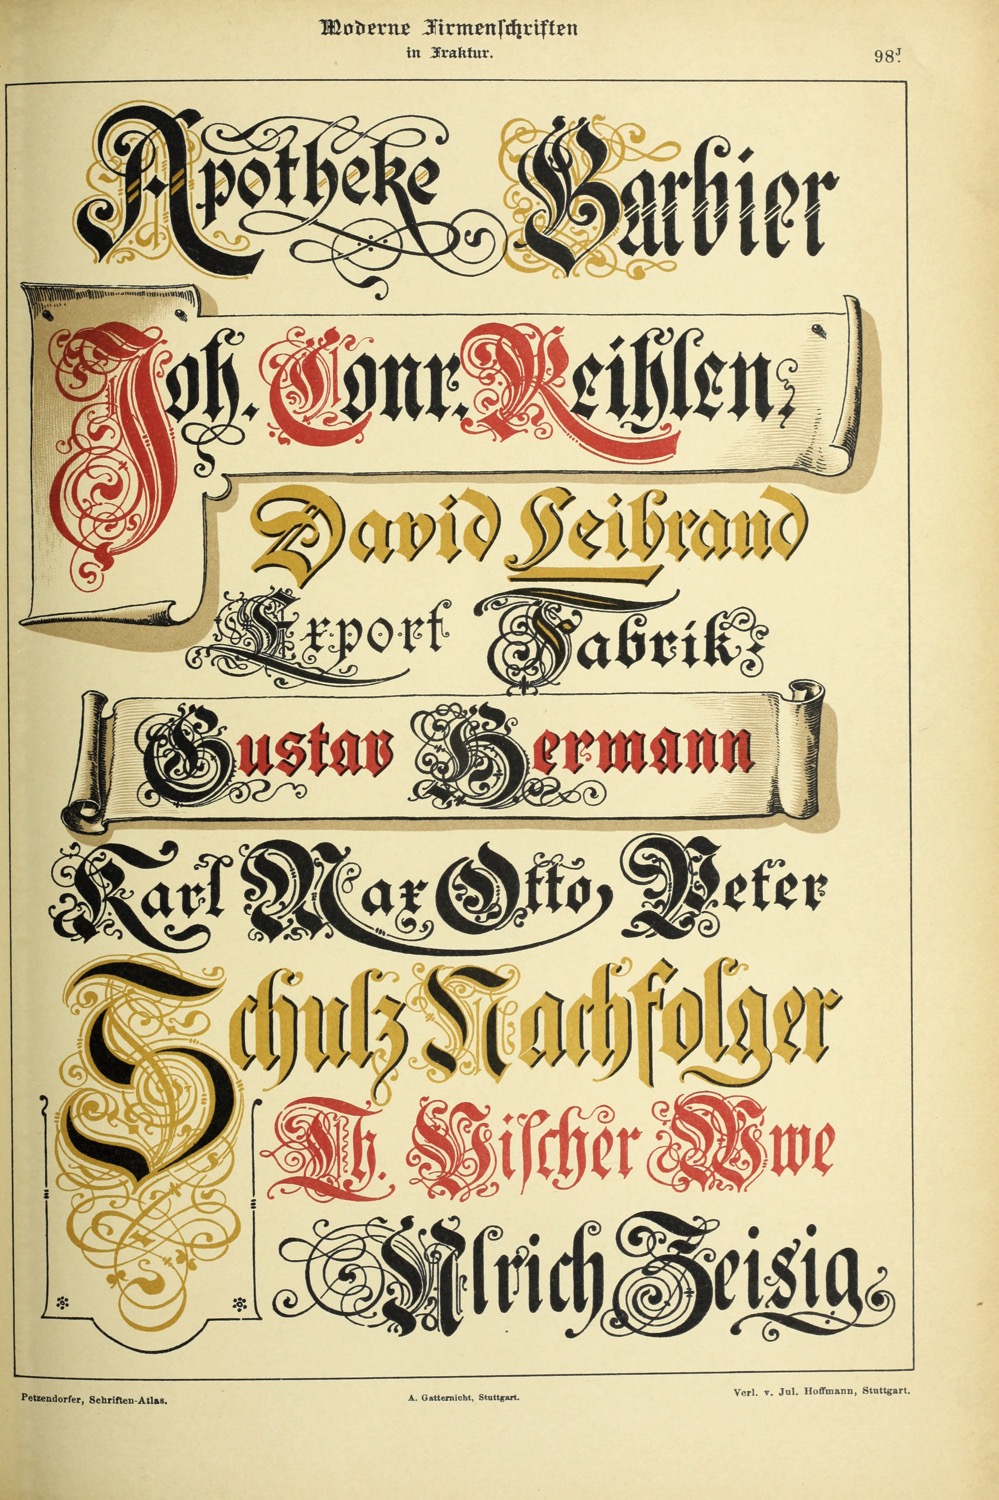 Moderne Firmenschriften
in Fraktur.
98J.
Apotheke Barbier
Joh. Conr. Reihlen,
David Leibrand
Export Fabrik
Gustav Hermann
Karl Max Otto, Peter
Schulz Nachfolger
Th. Vischer Wwe
Ulrich Zeisig
Petzendorfer, Schriften-Atlas.
A. Gatternicht, Stuttgart.
Verl. v. Jul. Hoffmann, Stuttgart.